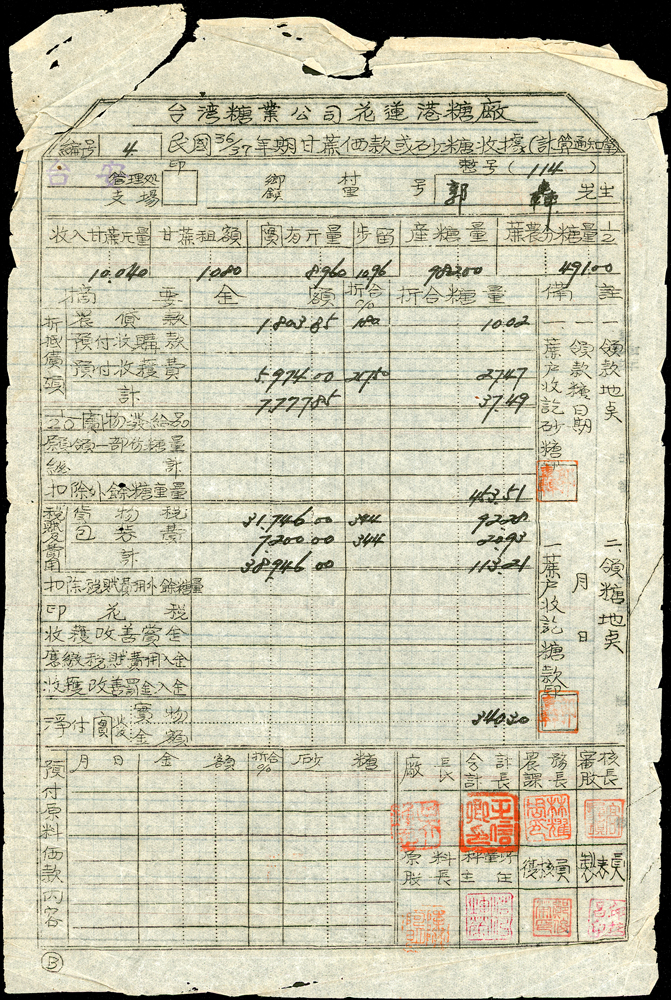 台湾糖業公司花蓮港糖廠
編号 4. 民國36/37年期甘蔗価款或砂糖收據(計算通知單)
印 整号( 114 )
管理処 支場 鄉鎮 村里 号 郭 先生
收入甘蔗斤量 甘蔗租額 實有斤量 步留 產糖量 蔗農分糖量1/2
10.040 1.080 8.960 10.96 982.00 491.00
摘要 金額 折合% 折合糖量 備註
折抵價項
裝貸款 1803.85 180 10.02
預付收購款
預付收穫費 5.974.00 217.50 27.47
計 7.777.85 37.49
1/20實物券給品
願領一部份糖量
総計
扣除外餘糖重量 453.51
稅賦及費用
貨物稅 31.746.00 344 92.28
包裝費 7.200.00 344 20.93
計 38.946.00 113.21
扣除稅賦費用外餘糖量
印花稅
收穫改善賞金
應繳稅賦費用入金
收穫改善罰金入金
淨付實發 實物 金額 340.30
一 領款地点
一 領款糖日期
一 蔗户收訖砂糖
二 領糖地点
月 日
一 蔗户收訖糖款印
預付原料価款內容
月日 金額 折合% 砂糖
廠長 會計課長 農務課長 審核股長
原料股長 主任 復核員 製表員
B